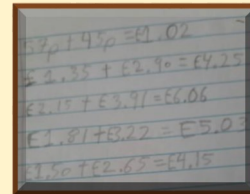 + =£1.02
£1.35 + £2.90 = £4.25
£2.15 + £3.91 = £6.06
£1.81 + £3.22 = £5.03
£1.50 + £2.65 = £4.15